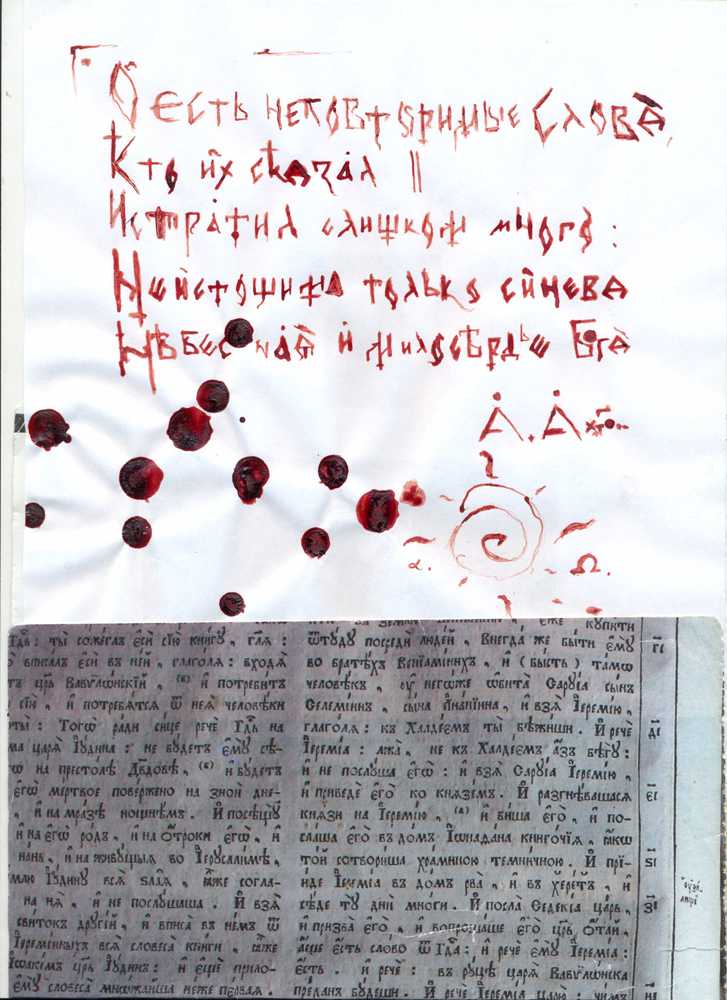 О есть неповторимые слова,
Кто их сказал ||
Истратил слишком много :
Неистощима только синева
Нѣбесная и милосѣрдье Бога
А. Ах
α. Ω.
Гдь : ты сожеглъ є҆сѝ сїю̀ кни́гу , гл҃я :
вписалъ є҆сѝ въ не́й , глаго́ля : входѧ̀
царь Вавѷлѡ́нскїй , (в) и҆ потреби́тъ
сїѝ , и҆ потребѧ́тся ѿ неѧ̀ человѣ́ки
Тогѡ̀ ра́ди си́це речѐ Гдь на
царѧ̀ І҆у́дина : не бу́детъ є҆му̀ сѣ-
на престо́лѣ Дв҃довѣ , (б) и҆ бу́детъ
є҆гѡ̀ ме́ртвое пове́ржено на зно́и дне-
и҆ на мра́зѣ нощнѣ́мъ . И҆ посѣщу̀
и҆ на є҆гѡ̀ ро́дъ , и҆ на ѻ҆́троки є҆гѡ̀ , и҆
и҆ на живу́щыѧ во І҆ерусали́мѣ ,
І҆у́дину всѧ̀ sла̑ѧ , ꙗ҆̀же согла-
на нѧ̀ , и҆ не послу́шаша . И҆ взѧ̀
сви́токъ другі́й , и҆ вписа̀ въ не́мъ ѿ
І҆еремі́иныхъ всѧ̀ словеса̀ кни́ги , ꙗ҆̀же
І҆ѡакі́мъ цр҃ь І҆у́динъ : и҆ є҆щѐ прило-
є҆му̀ словеса̀ мнѡ́жайша не́же пе́рваѧ .
є҆́же купи́ти
ѿту́ду посредѣ̀ люде́й , Внегда́ же бы́ти є҆му̀
во вратѣ́хъ Венїамі́нихъ , и҆ ( бы́сть ) та́мѡ
человѣ́къ , ᲂу҆ негѡ́же ѡ҆бита̀ Сарᲂу́їа сы́нъ
Селемі́инъ , сы́на А҆на́нїина , и҆ взѧ̀ І҆еремі́ю ,
глаго́лѧ : къ Халде́ємъ ты̀ бѣжи́ши . И҆ речѐ
І҆еремі́а : лжа̀ , не къ Халде́ємъ а҆́зъ бѣгу̀ :
и҆ не послу́ша є҆гѡ̀ : и҆ взѧ̀ Сарᲂу́їа І҆еремі́ю ,
и҆ приведѐ є҆го̀ ко кнѧзє́мъ . И҆ разгнѣ́вашасѧ
кнѧ̑зи на І҆еремі́ю , (а) и҆ би́ша є҆го̀ , и҆ по-
сла́ша є҆го̀ въ до́мъ І҆ѡнаѳа́на книго́чїѧ , ꙗ҆́кѡ
то́й сотвори́ша хра́миною темни́чною . И҆ прї-
и́де І҆еремі́а въ до́мъ рва̀ , и҆ въ хере́тъ , и҆
сѣ́де тᲂу̀ дни̑ мнѡ́ги . И҆ посла̀ Седекі́а ца́рь ,
и҆ призва̀ є҆го̀ , и҆ вопроша́ше є҆го̀ цр҃ь ѻ҆та́й ,
а҆́ще є҆́сть сло́во ѿ Гд҃а : и҆ речѐ є҆му̀ І҆еремі́а :
є҆́сть . и҆ речѐ : въ рᲂу́цѣ царѧ̀ Вавѷлѡ́нска
пре́данъ бᲂу́деши . И҆ речѐ І҆еремі́а царю̀ :
г҃і
д҃і
є҃і
ѕ҃і
з҃і